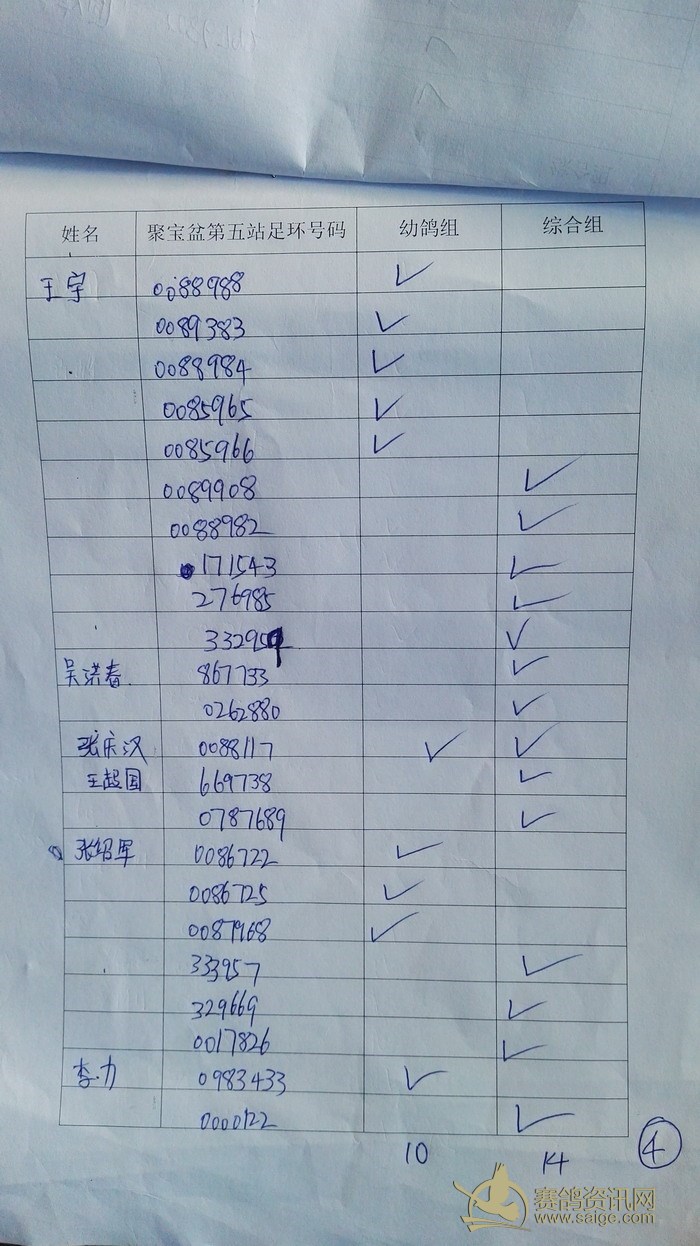 姓名 聚宝盆第五站足环号码 幼鸽组 综合组
王宇 0088988 ✓
0089383 ✓
0088984 ✓
0085965 ✓
0085966 ✓
0089908 ✓
0088982 ✓
171543 ✓
276985 ✓
332959 ✓
吴洪春 867733 ✓
0262880 ✓
张庆汉 0088117 ✓ ✓
王超国 669738 ✓
0787689 ✓
张绍军 0086722 ✓
0086725 ✓
0087968 ✓
333957 ✓
329669 ✓
0017826 ✓
李力 0983433 ✓
0000122 ✓
10 14 ④
赛鸽资讯网
www.saige.com